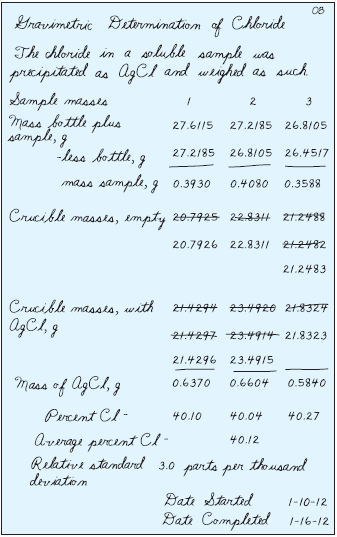 08
Gravimetric Determination of Chloride
The chloride in a soluble sample was
precipitated as AgCl and weighed as such
Sample masses 1 2 3
Mass bottle plus
sample, g 27.6115 27.2185 26.8105
-less bottle, g 27.2185 26.8105 26.4517
mass sample, g 0.3930 0.4080 0.3588
Crucible masses, empty 20.7925 22.8311 21.2488
20.7926 22.8311 21.2482
21.2483
Crucible masses, with
AgCl, g 21.4294 23.4920 21.8324
21.4297 23.4914 21.8323
21.4296 23.4915
Mass of AgCl, g 0.6370 0.6604 0.5840
Percent Cl- 40.10 40.04 40.27
Average percent Cl- 40.12
Relative standard 3.0 parts per thousand
deviation
Date Started 1-10-12
Date Completed 1-16-12